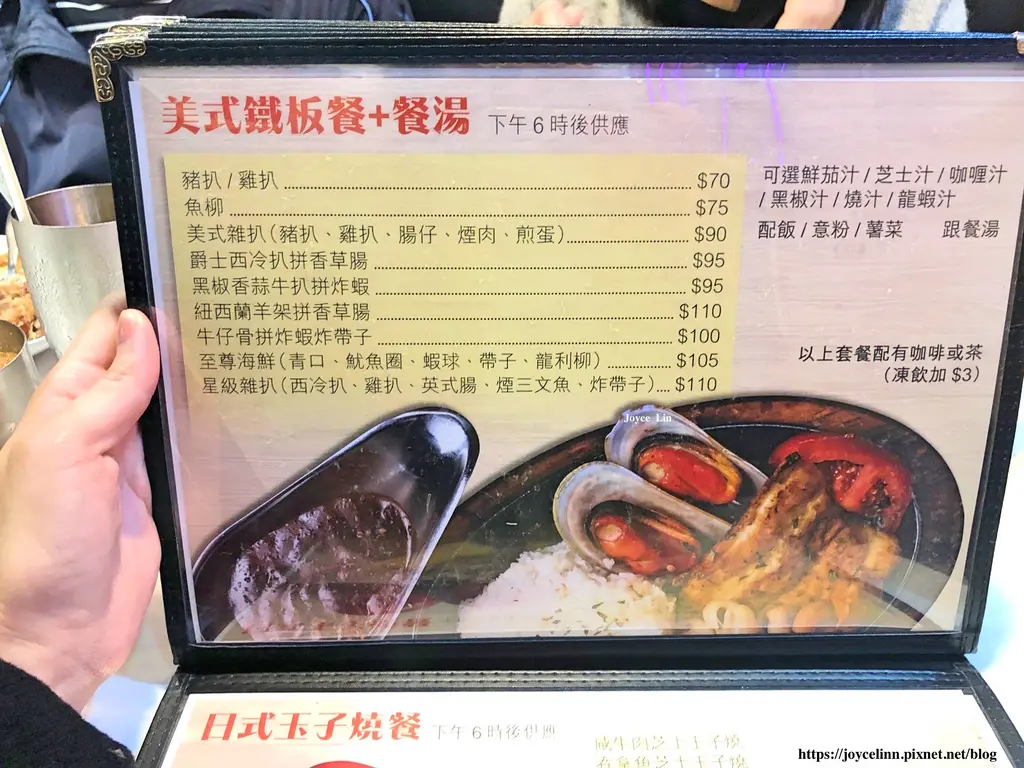 美式鐵板餐+餐湯 下午6時後供應
豬扒 / 雞扒 $70
魚柳 $75
美式雜扒(豬扒、雞扒、腸仔、煙肉、煎蛋) $90
爵士西冷扒拼香草腸 $95
黑椒香蒜牛扒拼炸蝦 $95
紐西蘭羊架拼香草腸 $110
牛仔骨拼炸蝦炸帶子 $100
至尊海鮮(青口、魷魚圈、蝦球、帶子、龍利柳) $105
星級雜扒(西冷扒、雞扒、英式腸、煙三文魚、炸帶子) $110
可選鮮茄汁 / 芝士汁 / 咖喱汁
/ 黑椒汁 / 燒汁 / 龍蝦汁
配飯 / 意粉 / 薯菜 跟餐湯
以上套餐配有咖啡或茶
(凍飲加 $3)
Joyce Lin
日式玉子燒餐 下午6時後供應
咸牛肉芝士玉子燒
吞拿魚芝士玉子燒
https://joycelinn.pixnet.net/blog